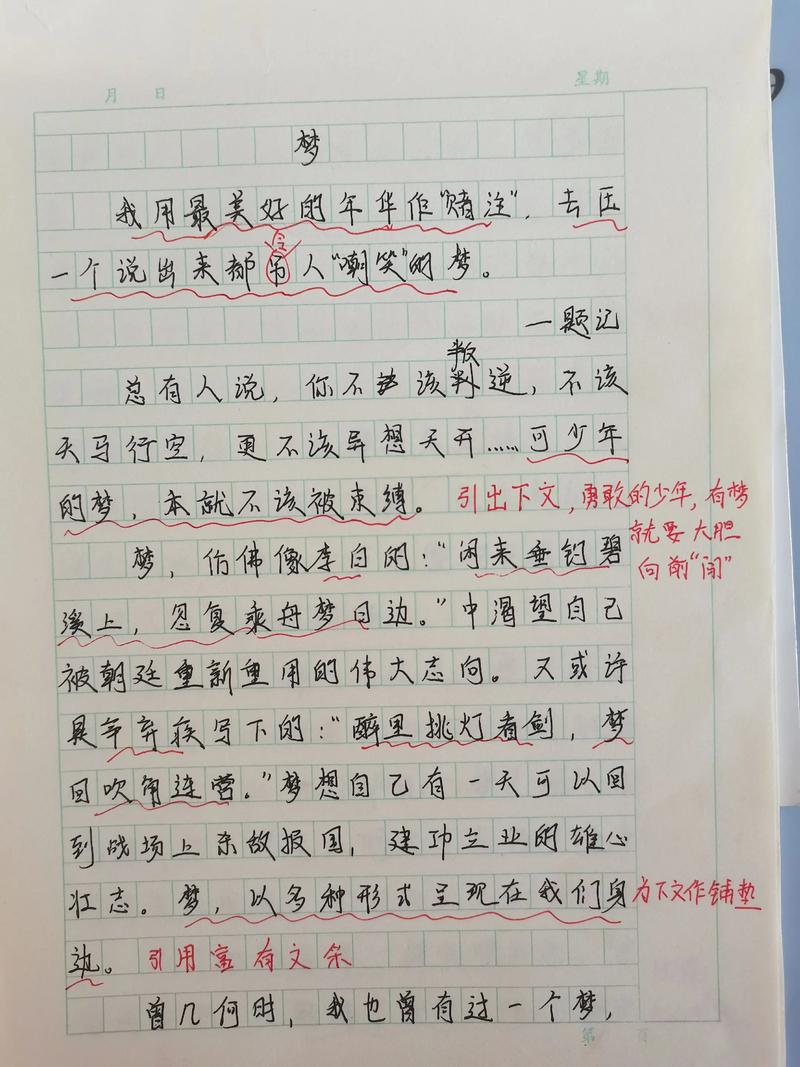 月 日 星期
梦
我用最美好的年华作"赌注"，去压
令
一个说出来都吊人"嘲笑"的梦。
—题记
叛
总有人说，你不该判逆，不该
天马行空，更不该异想天开……可少年
的梦，本就不该被束缚。 引出下文，勇敢的少年，有梦
就要大胆
向前"闯"
梦，仿佛像李白的："闲来垂钓碧
溪上，忽复乘舟梦日边。"中渴望自己
被朝廷重新重用的伟大志向。又或许
是辛弃疾写下的："醉里挑灯看剑，梦
回吹角连营。"梦想自己有一天可以回
到战场上杀敌报国，建功立业的雄心
壮志。梦，以多种形式呈现在我们身 为下文作铺垫
边。 引用富有文采
曾几何时，我也曾有过一个梦，
第 页